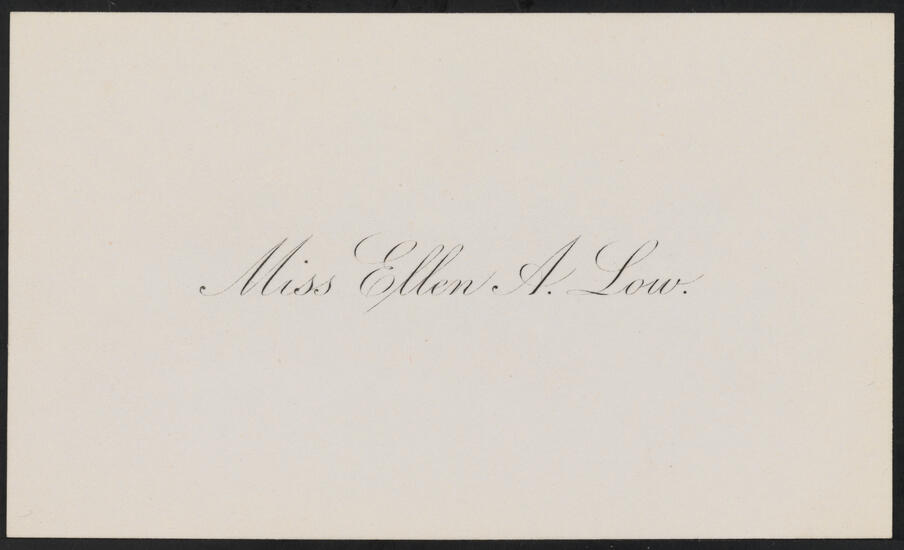 Miss Ellen A. Low.